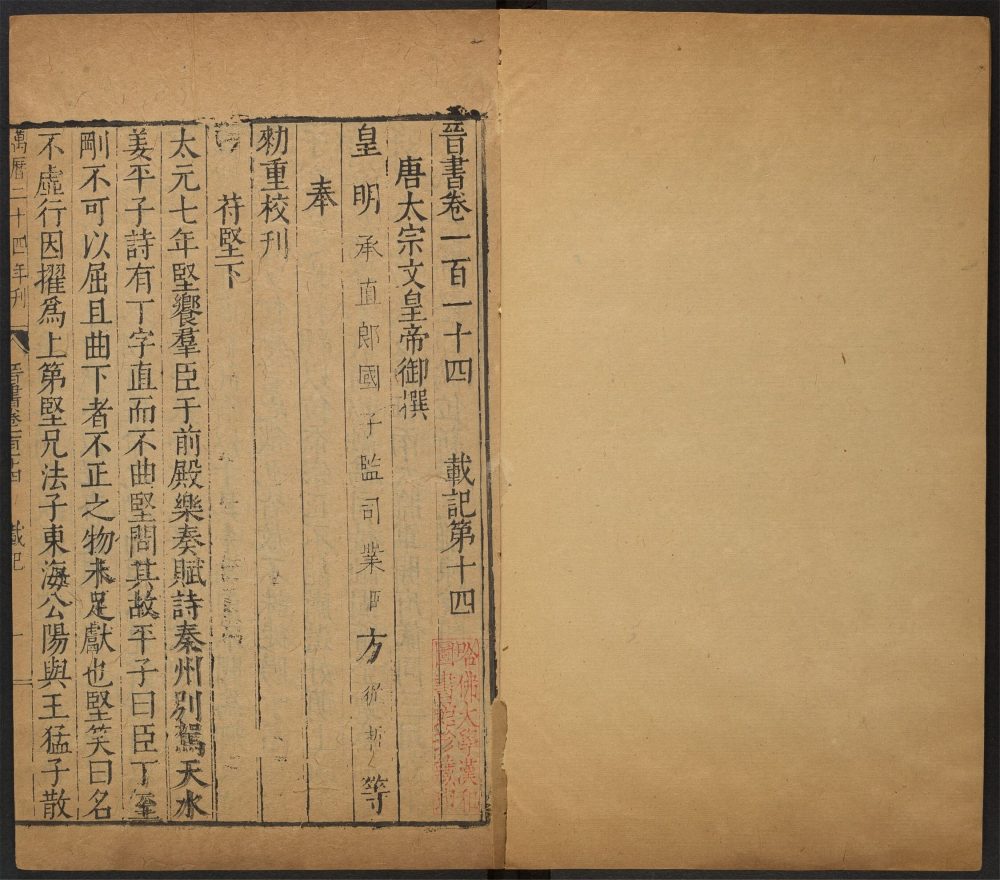 晉書卷一百一十四 載記第十四
唐太宗文皇帝御撰
皇明承直郎國子監司業臣方從哲等
奉
勑重校刊
苻堅下
太元七年堅饗羣臣于前殿樂奏賦詩秦州別駕天水
姜平子詩有丁字直而不曲堅問其故平子曰臣丁至
剛不可以屈且曲下者不正之物未足獻也堅笑曰名
不虛行因擢爲上第堅兄法子東海公陽與王猛子散
萬曆二十四年刊 晉書卷一百十四 載記 一
哈佛大學漢和
圖書館珍藏印